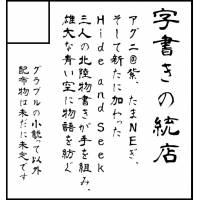 字書きの統店
アグニ@紫、たまNEぎ、
そして新たに加わった
Hide and Seek
三人の北陸物書きが手を組み、
雄大な青い空に物語を紡ぐ
グラブルの小説って以外
配布物は未だに未定です